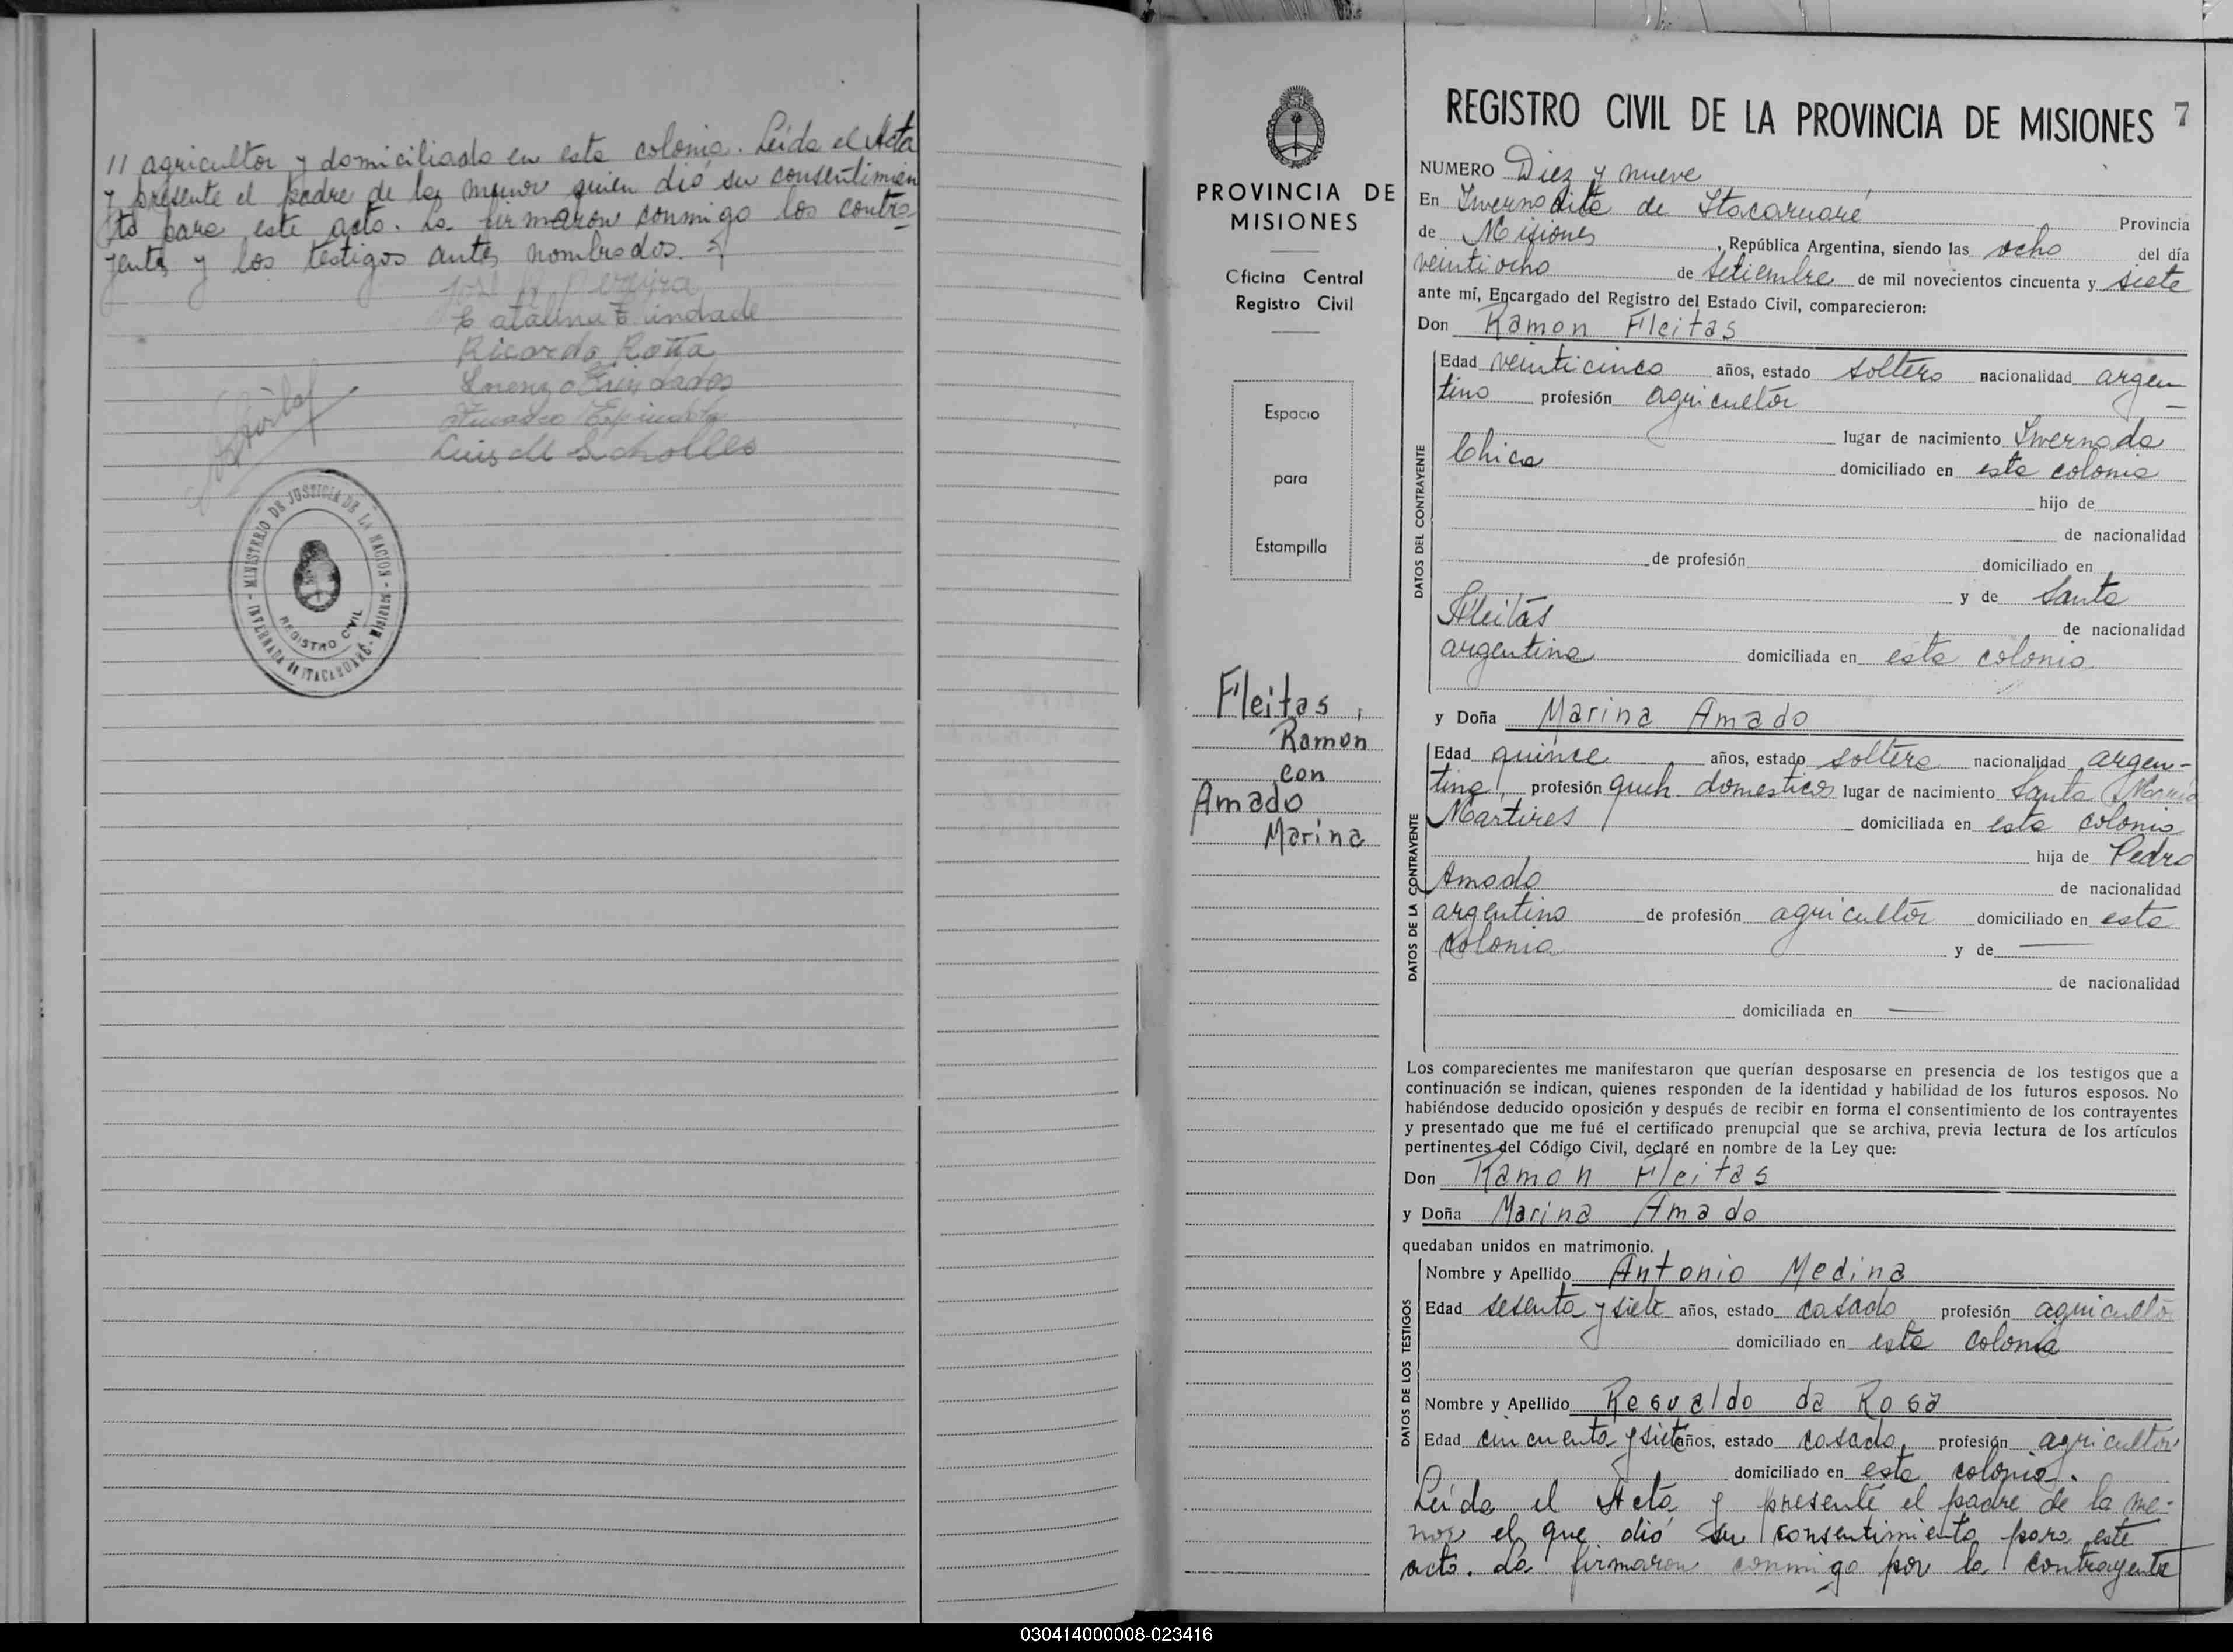 11 agricultor y domiciliado en esta colonia. Leída el Acta
y presente el padre de la menor quien dió su consentimien
to para este acto. La firmaron conmigo los contra-
yentes y los testigos antes nombrados.
Catalina Trindade
Ricardo Rotta
Lorenzo Trindades
Espindola
Luis M Scholles
MINISTERIO DE JUSTICIA DE LA NACION
REGISTRO CIVIL
INVERNADA DE ITACARUARÉ - MISIONES
PROVINCIA DE
MISIONES
Oficina Central
Registro Civil
Espacio
para
Estampilla
Fleitas,
Ramon
con
Amado
Marina
REGISTRO CIVIL DE LA PROVINCIA DE MISIONES 7
NUMERO Diez y nueve
En de Itacaruaré Provincia
de Misiones, República Argentina, siendo las ocho del día
veintiocho de Setiembre de mil novecientos cincuenta y siete
ante mí, Encargado del Registro del Estado Civil, comparecieron:
Don Ramon Fleitas
DATOS DEL CONTRAYENTE
Edad veinticinco años, estado soltero nacionalidad argen-
tino profesión agricultor
lugar de nacimiento Invernada
Chica domiciliado en esta colonia
hijo de
de nacionalidad
de profesión domiciliado en
y de Santa
Fleitas de nacionalidad
argentina domiciliada en esta colonia
y Doña Marina Amado
DATOS DE LA CONTRAYENTE
Edad quince años, estado soltera nacionalidad argen-
tina, profesión queh domesticos lugar de nacimiento Santa Maria
Martires domiciliada en esta colonia
hija de Pedro
Amado de nacionalidad
argentino de profesión agricultor domiciliado en esta
colonia y de
de nacionalidad
domiciliada en
Los comparecientes me manifestaron que querían desposarse en presencia de los testigos que a
continuación se indican, quienes responden de la identidad y habilidad de los futuros esposos. No
habiéndose deducido oposición y después de recibir en forma el consentimiento de los contrayentes
y presentado que me fué el certificado prenupcial que se archiva, previa lectura de los artículos
pertinentes del Código Civil, declaré en nombre de la Ley que:
Don Ramón Fleitas
y Doña Marina Amado
quedaban unidos en matrimonio.
DATOS DE LOS TESTIGOS
Nombre y Apellido Antonio Medina
Edad sesenta y siete años, estado casado profesión agricultor
domiciliado en esta colonia
Nombre y Apellido Resvaldo da Rosa
Edad cincuenta y siete años, estado casado, profesión agricultor
domiciliado en esta colonia.
Leída el Acta y presente el padre de la me-
nor el que dió su consentimiento para este
acto. La firmaron conmigo por la contrayente
030414000008-023416